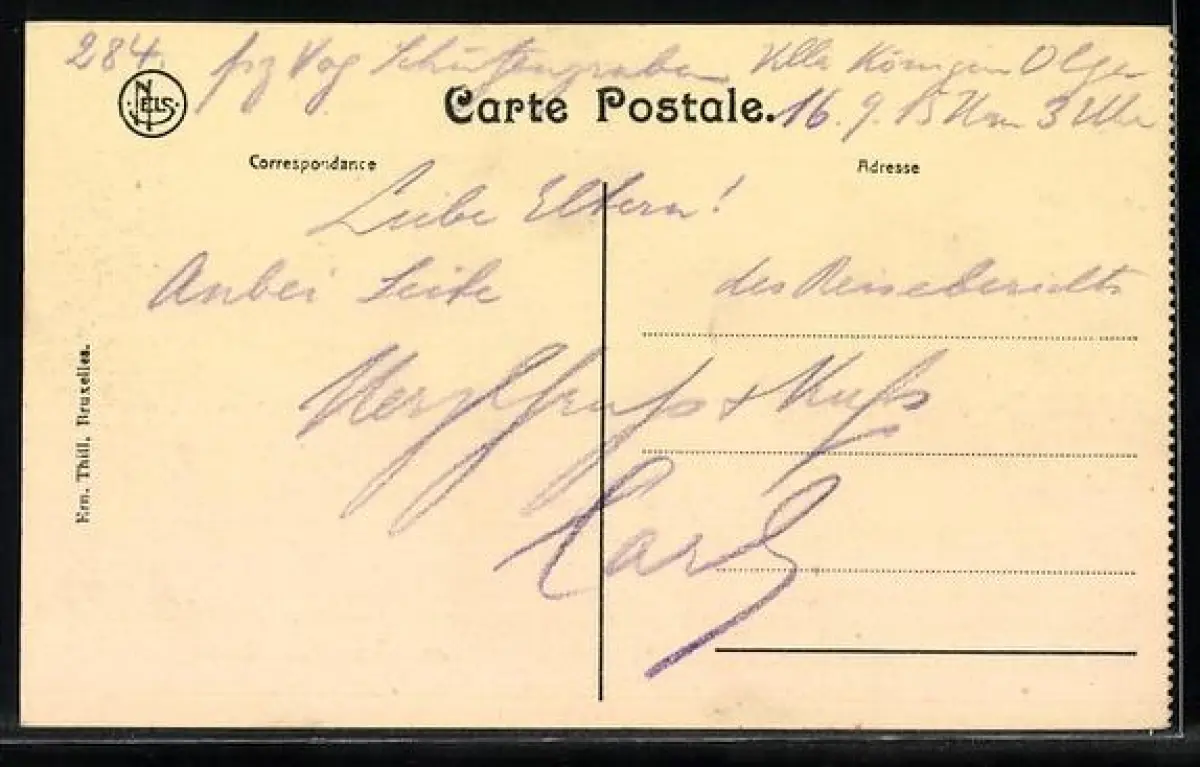 284. Schützengraben Villa Königin Olga
NELS
Carte Postale. 16. 9. 15 3 Uhr
Correspondance Adresse
Liebe Eltern!
Anbei Seite des Reiseberichts
Herzl Gruß + Kuß
Karl
Ern. Thill, Bruxelles.